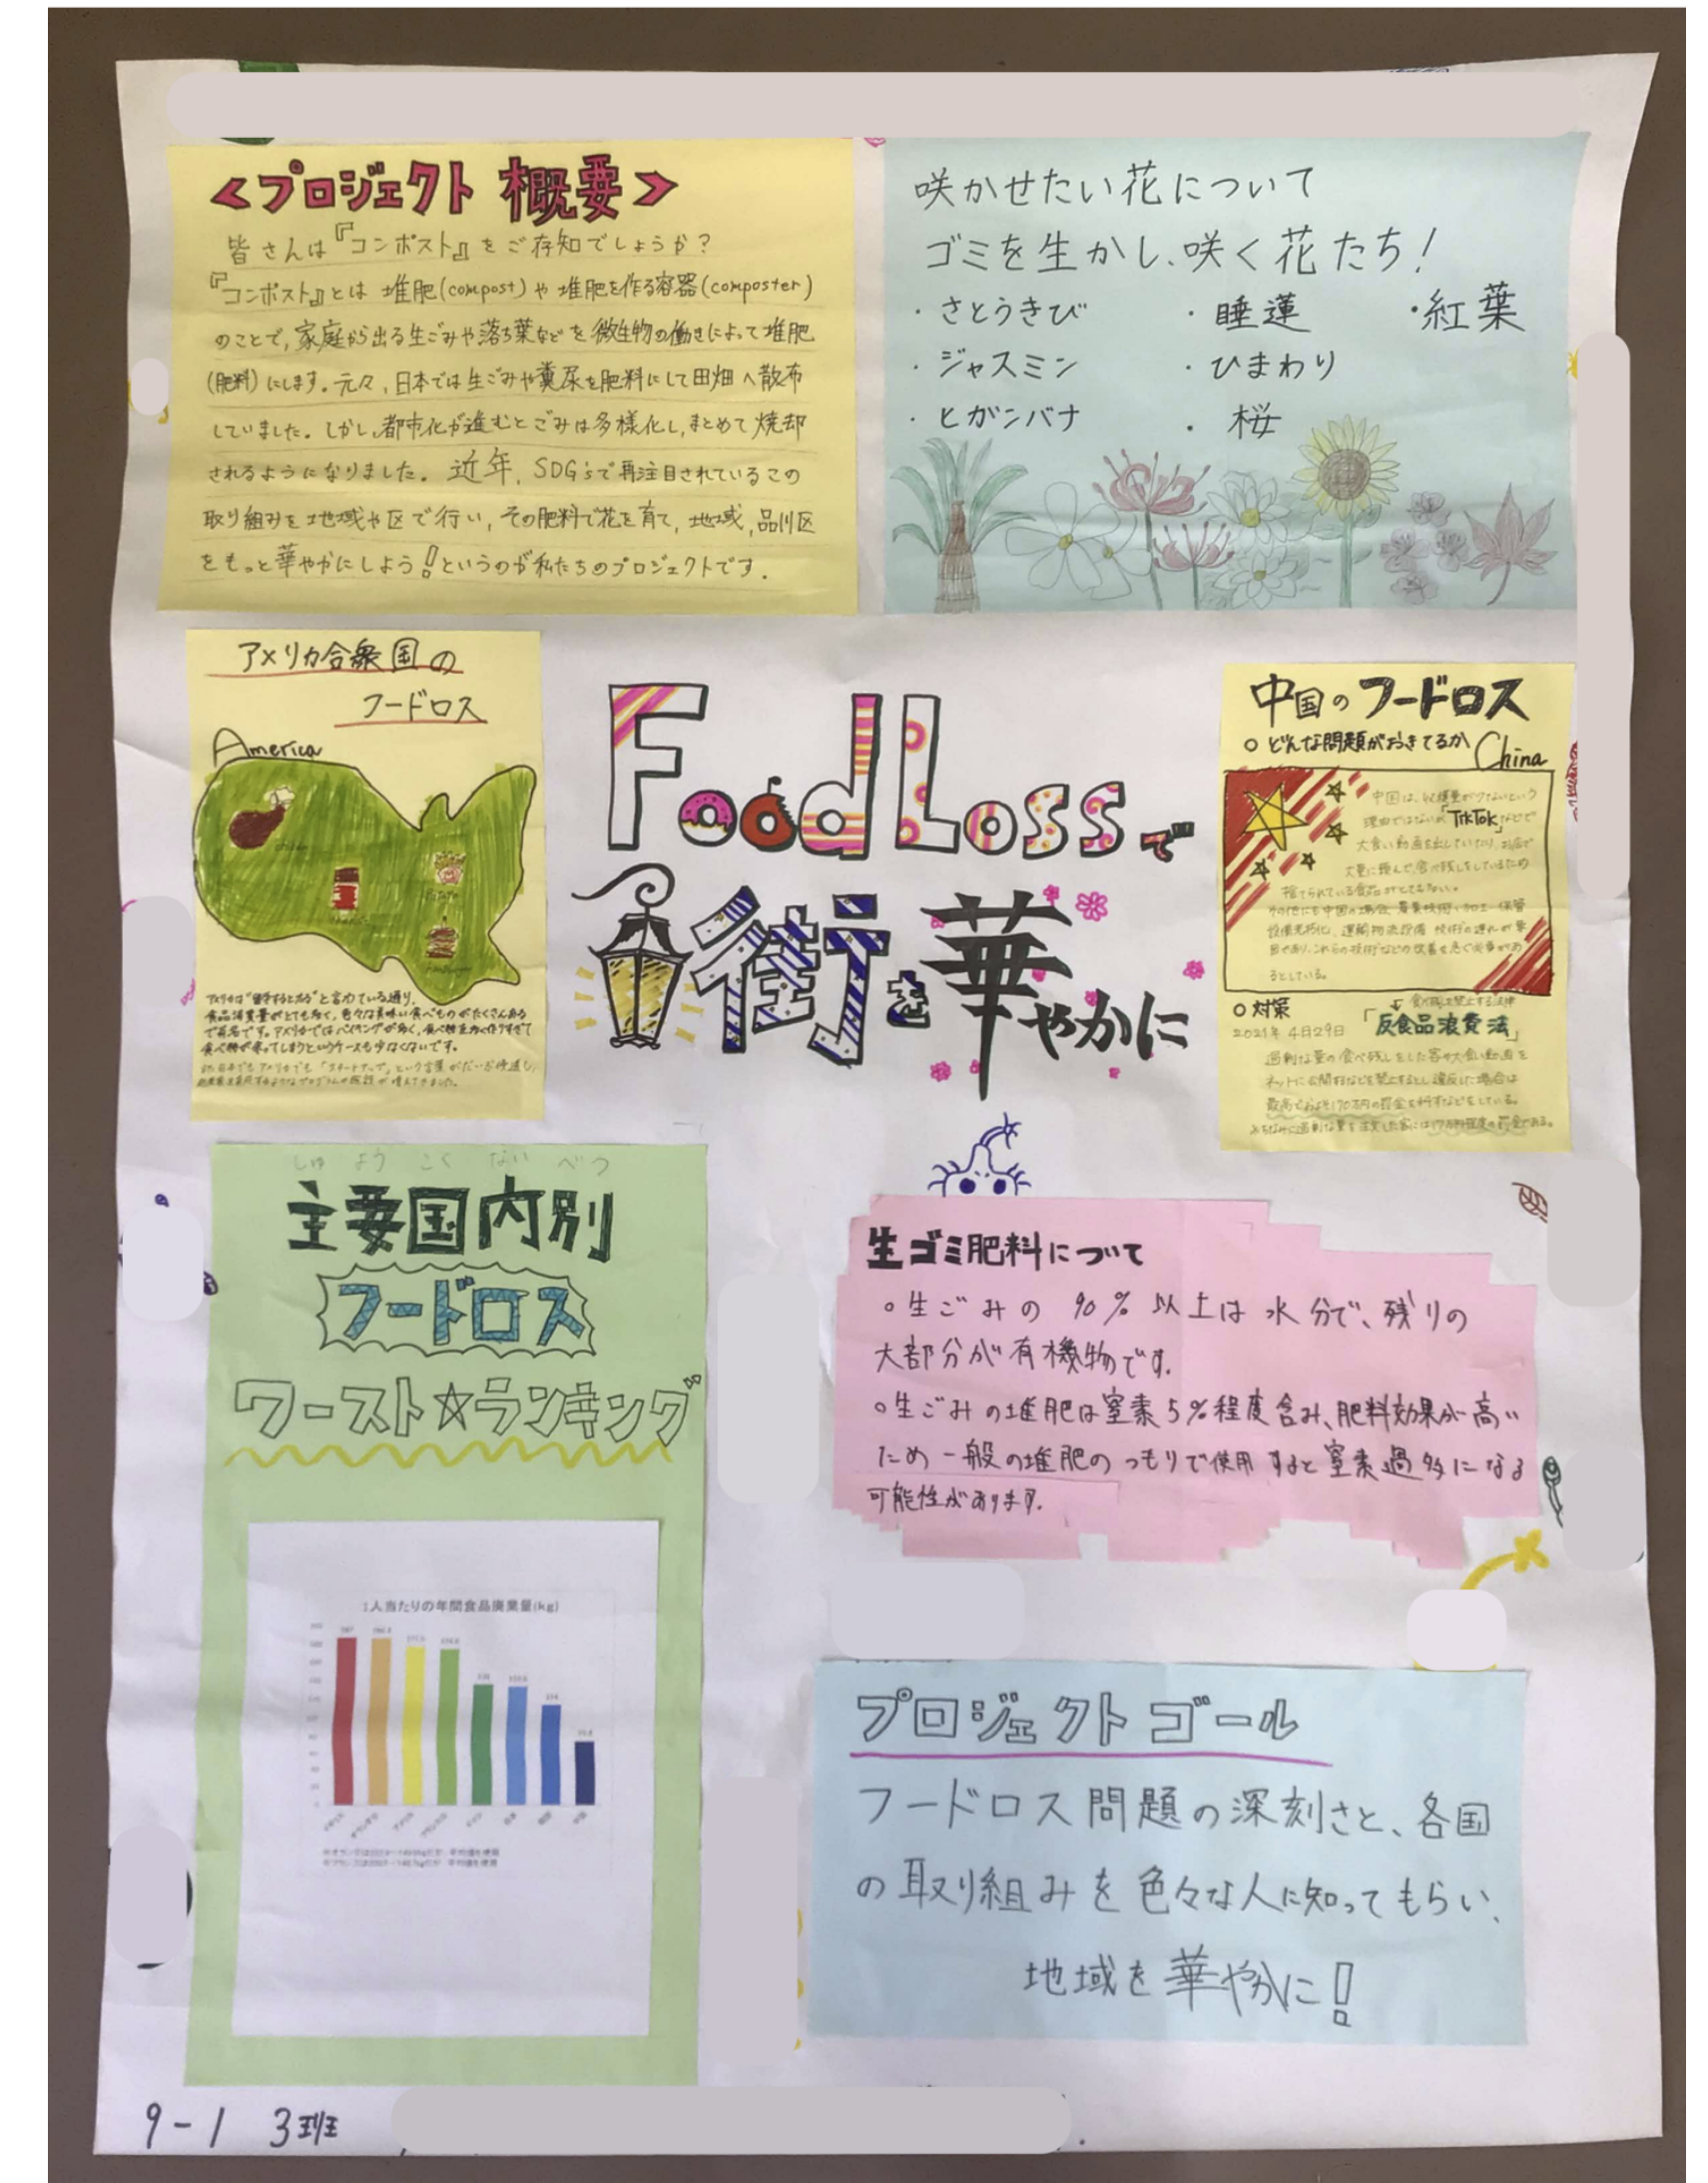 <プロジェクト 概要>
皆さんは『コンポスト』をご存知でしょうか?
『コンポスト』とは 堆肥(compost)や 堆肥を作る容器(composter)
のことで,家庭から出る生ごみや落ち葉などを 微生物の働きによって堆肥
(肥料)にします。元々,日本では生ごみや糞尿を肥料にして田畑へ散布
していました。しかし,都市化が進むとごみは多様化し,まとめて焼却
されるようになりました。近年,SDG'sで再注目されているこの
取り組みを地域や区で行い,その肥料で花を育て,地域,品川区
をもっと華やかにしよう!というのが私たちのプロジェクトです.
咲かせたい花について
ゴミを生かし、咲く花たち!
・さとうきび ・睡蓮 ・紅葉
・ジャスミン ・ひまわり
・ヒガンバナ ・桜
アメリカ合衆国の
フードロス
America
potato
hamburger
アメリカは"留学すると太る"と言われている通り,
食品消費量がとても多く,色々な美味い食べものがたくさんある
で有名です。アメリカではバイキングが多く,食べ物を多く作りすぎて
食べ物が余ってしまうというケースも少なくないです。
Food Lossで
街を華やかに
中国のフードロス
○どんな問題がおきてるか
China
中国は、収穫量が少ないという
理由ではないが「TikTok」などで
大食い動画を出していたり、お店で
大量に頼んで食べ残しをしているため
捨てられている食品がとても多い。
その他にも中国の場合、農業技術、加工、保管
設備老朽化、運輸物流設備 技術の遅れが要
るとしている。
○対策
食べ残しを禁止する法律
2021年4月29日 「反食品浪費法」
過剰な量の食べ残しをした客や大食い動画を
ネットに公開するなどを禁止するとし違反した場合は
最高でおよそ170万円の罰金を科すなどをしている。
しゅ よう こく ない べつ
主要国内別
フードロス
ワースト☆ランキング
1人当たりの年間食品廃棄量(kg)
生ゴミ肥料について
○生ごみの 90% 以上は 水分で、残りの
大部分が有機物です.
○生ごみの堆肥は窒素5%程度含み、肥料効果が高い
ため一般の堆肥のつもりで使用すると窒素過多になる
可能性があります.
プロジェクトゴール
フードロス問題の深刻さと、各国
の取り組みを色々な人に知ってもらい、
地域を華やかに!
9-1 3班